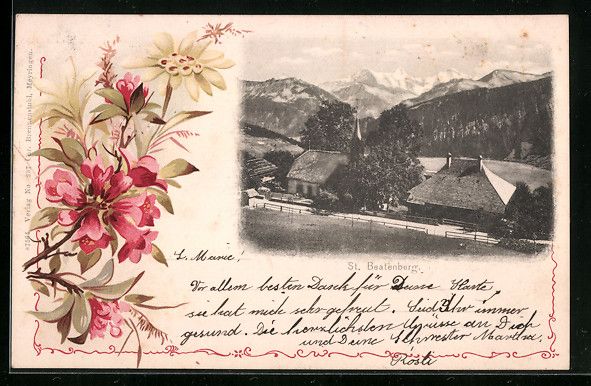 St. Beatenberg.
L. Marie!
Vor allem besten Dank für Deine Karte,
sie hat mich sehr gefreut. Seid Ihr immer
gesund. Die herzlichsten Grüsse an Dich
und Deine Schwester
Rösli
Verlag No.
Brennenstuhl, Meyringen.